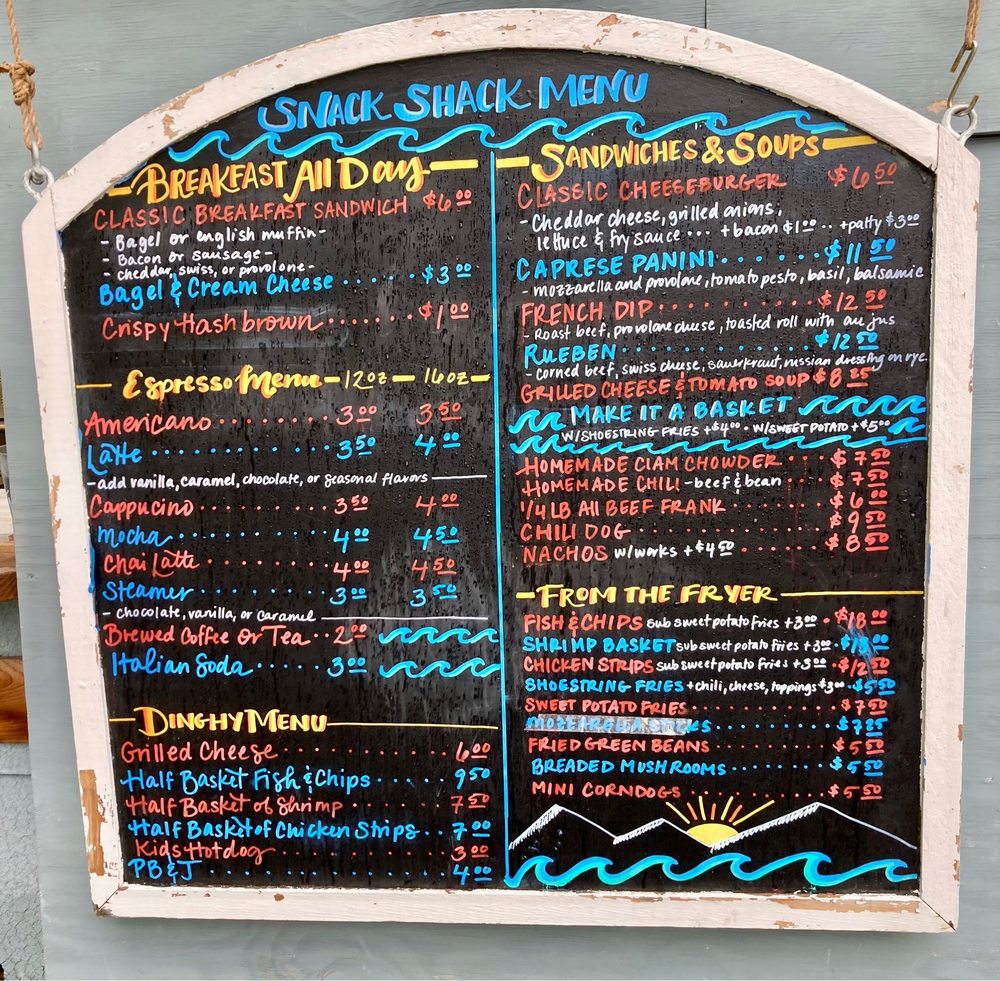 SNACK SHACK MENU
BREAKFAST All Day
CLASSIC BREAKFAST SANDWICH $6.00
- Bagel or english muffin -
- Bacon or sausage -
- cheddar, swiss, or provolone -
Bagel & Cream Cheese ..... $3.00
Crispy Hash brown ....... $1.00
Espresso Menu - 12oz - 16oz -
Americano ........ 3.00 3.50
Latte ......... 3.50 4.00
- add vanilla, caramel, chocolate, or seasonal flavors
Cappucino ....... 3.50 4.00
Mocha ........ 4.00 4.50
Chai Latte ....... 4.00 4.50
Steamer ....... 3.00 3.50
- chocolate, vanilla, or caramel
Brewed Coffee or Tea .. 2.00
Italian Soda ...... 3.00
DINGHY MENU
Grilled Cheese ........... 6.00
Half Basket Fish & Chips ...... 9.50
Half Basket of Shrimp ....... 7.50
Half Basket of Chicken Strips .. 7.00
Kids Hotdog ............ 3.00
PB&J ................ 4.00
SANDWICHES & SOUPS
CLASSIC CHEESEBURGER $6.50
- Cheddar cheese, grilled onions,
lettuce & fry sauce ... + bacon $1.00 .. + patty $3.00
CAPRESE PANINI ....... $11.50
- mozzarella and provolone, tomato pesto, basil, balsamic
FRENCH DIP ........... $12.50
- Roast beef, provolone cheese, toasted roll with au jus
RUEBEN ............. $12.50
- corned beef, swiss cheese, sauerkraut, russian dressing on rye.
GRILLED CHEESE & TOMATO SOUP $8.25
MAKE IT A BASKET
W/SHOESTRING FRIES +$4.00 • W/SWEET POTATO +$5.00
HOMEMADE CLAM CHOWDER .... $7.50
HOMEMADE CHILI - beef & bean .... $7.50
1/4 LB All BEEF FRANK ........ $6.00
CHILI DOG ............. $9.50
NACHOS w/works + $4.50 ....... $8.50
FROM THE FRYER
FISH & CHIPS sub sweet potato fries +3.00 . $18.00
SHRIMP BASKET sub sweet potato fries +3.00 .
CHICKEN STRIPS sub sweet potato fries +3.00 . $12.50
SHOESTRING FRIES + chili, cheese, toppings $3.00 . $5.50
SWEET POTATO FRIES ........... $7.50
MOZZARELLA STICKS ......... $7.25
FRIED GREEN BEANS ......... $5.50
BREADED MUSHROOMS ........ $5.50
MINI CORNDOGS ........... $5.50